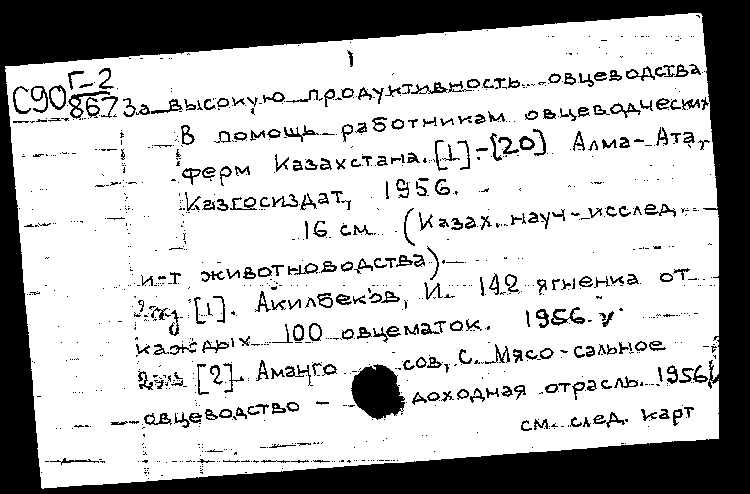 1
С90 Г-2
867 За высокую продуктивность овцеводства
В помощь работникам овцеводческих
ферм Казахстана. [1]-[20] Алма-Ата,
Казгосиздат, 1956.
16 см (Казах. науч-исслед.
и-т животноводства).
[1]. Акилбеков, И. 142 ягненка от
каждых 100 овцематок. 1956.
[2]. Аманго сов, С. Мясо-сальное
овцеводство - доходная отрасль. 1956
см. след. карт